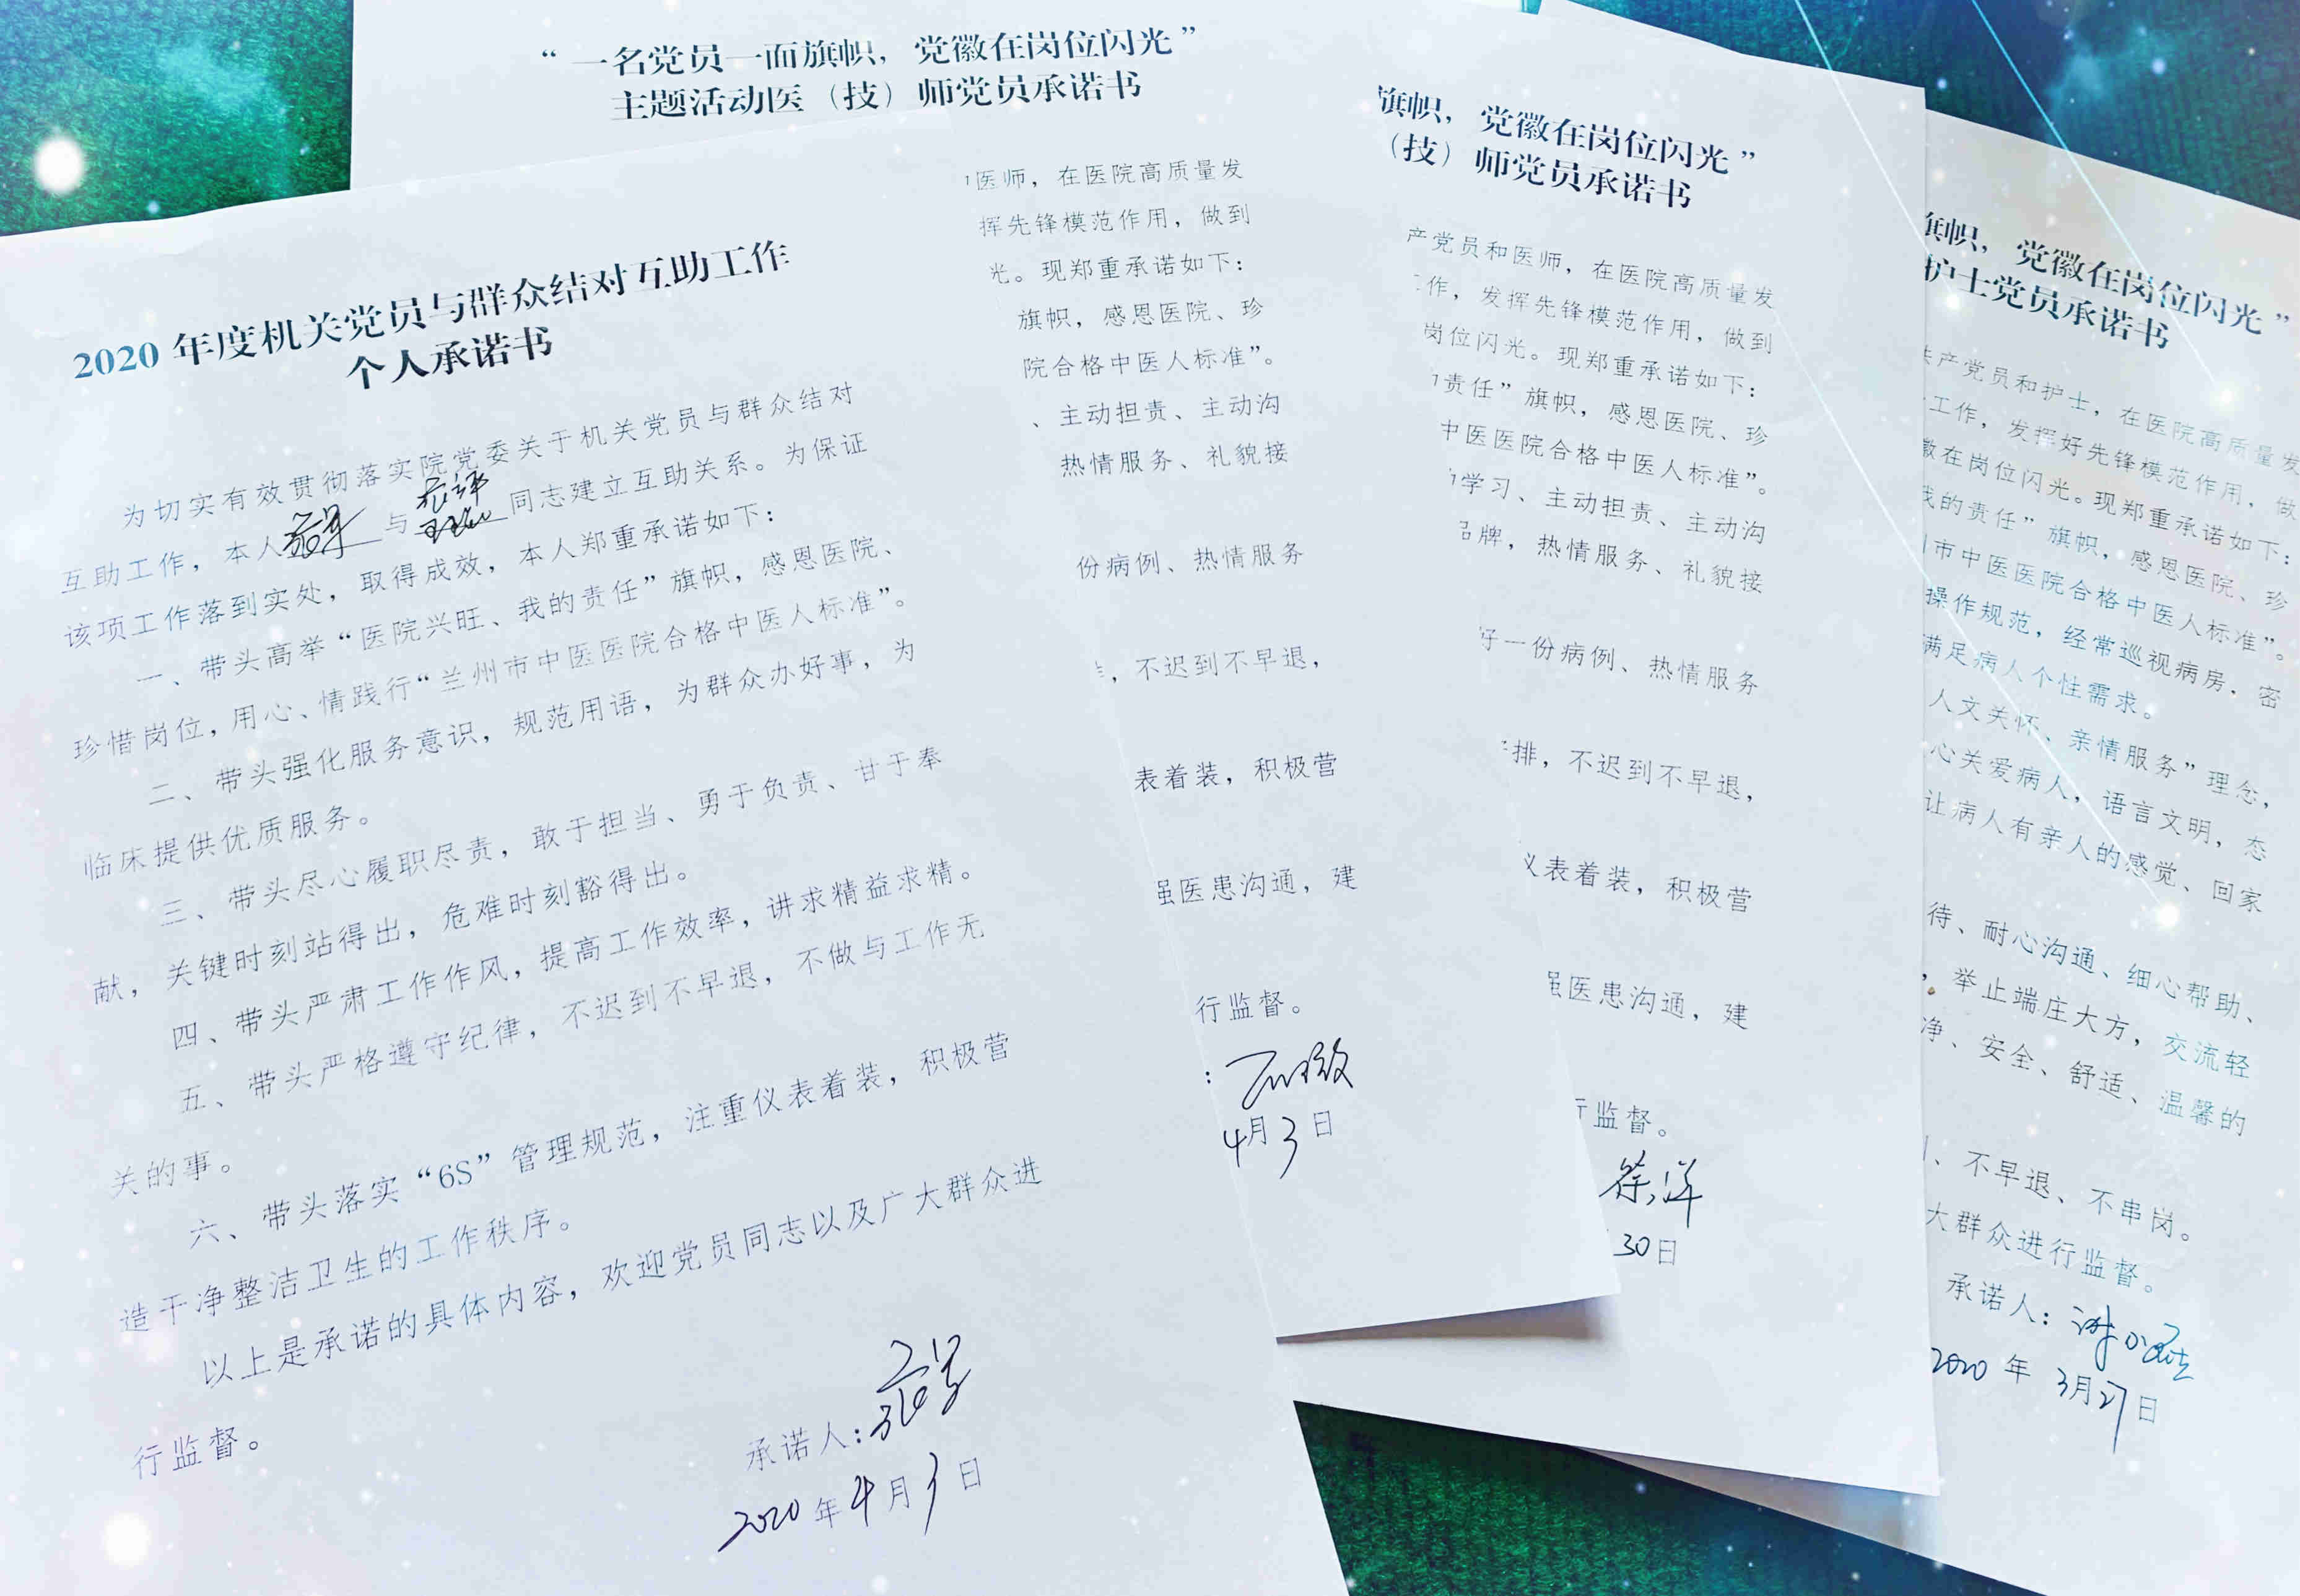 2020 年度机关党员与群众结对互助工作
个人承诺书
为切实有效贯彻落实院党委关于机关党员与群众结对
互助工作，本人 与 同志建立互助关系。为保证
该项工作落到实处，取得成效，本人郑重承诺如下：
一、带头高举“医院兴旺、我的责任”旗帜，感恩医院、
珍惜岗位，用心、情践行“兰州市中医医院合格中医人标准”。
二、带头强化服务意识，规范用语，为群众办好事，为
临床提供优质服务。
三、带头尽心履职尽责，敢于担当、勇于负责、甘于奉
献，关键时刻站得出，危难时刻豁得出。
四、带头严肃工作作风，提高工作效率，讲求精益求精。
五、带头严格遵守纪律，不迟到不早退，不做与工作无
关的事。
六、带头落实“6S”管理规范，注重仪表着装，积极营
造干净整洁卫生的工作秩序。
以上是承诺的具体内容，欢迎党员同志以及广大群众进
行监督。
承诺人：
2020 年 4 月 3 日
“一名党员一面旗帜，党徽在岗位闪光”
主题活动医（技）师党员承诺书
医师，在医院高质量发
挥先锋模范作用，做到
光。现郑重承诺如下：
旗帜，感恩医院、珍
院合格中医人标准”。
、主动担责、主动沟
热情服务、礼貌接
份病例、热情服务
，不迟到不早退，
表着装，积极营
强医患沟通，建
行监督。
：
4月3日
旗帜，党徽在岗位闪光”
（技）师党员承诺书
产党员和医师，在医院高质量发
作，发挥先锋模范作用，做到
岗位闪光。现郑重承诺如下：
责任”旗帜，感恩医院、珍
中医医院合格中医人标准”。
学习、主动担责、主动沟
品牌，热情服务、礼貌接
好一份病例、热情服务
排，不迟到不早退，
仪表着装，积极营
强医患沟通，建
行监督。
徐洋
30日
旗帜，党徽在岗位闪光”
护士党员承诺书
共产党员和护士，在医院高质量发
工作，发挥好先锋模范作用，做
徽在岗位闪光。现郑重承诺如下：
我的责任”旗帜，感恩医院、珍
市中医医院合格中医人标准”。
操作规范，经常巡视病房，密
满足病人个性需求。
人文关怀、亲情服务”理念，
心关爱病人，语言文明，态
让病人有亲人的感觉、回家
待、耐心沟通、细心帮助、
，举止端庄大方，交流轻
净、安全、舒适、温馨的
、不早退、不串岗。
大群众进行监督。
承诺人：
2020 年 3月27日